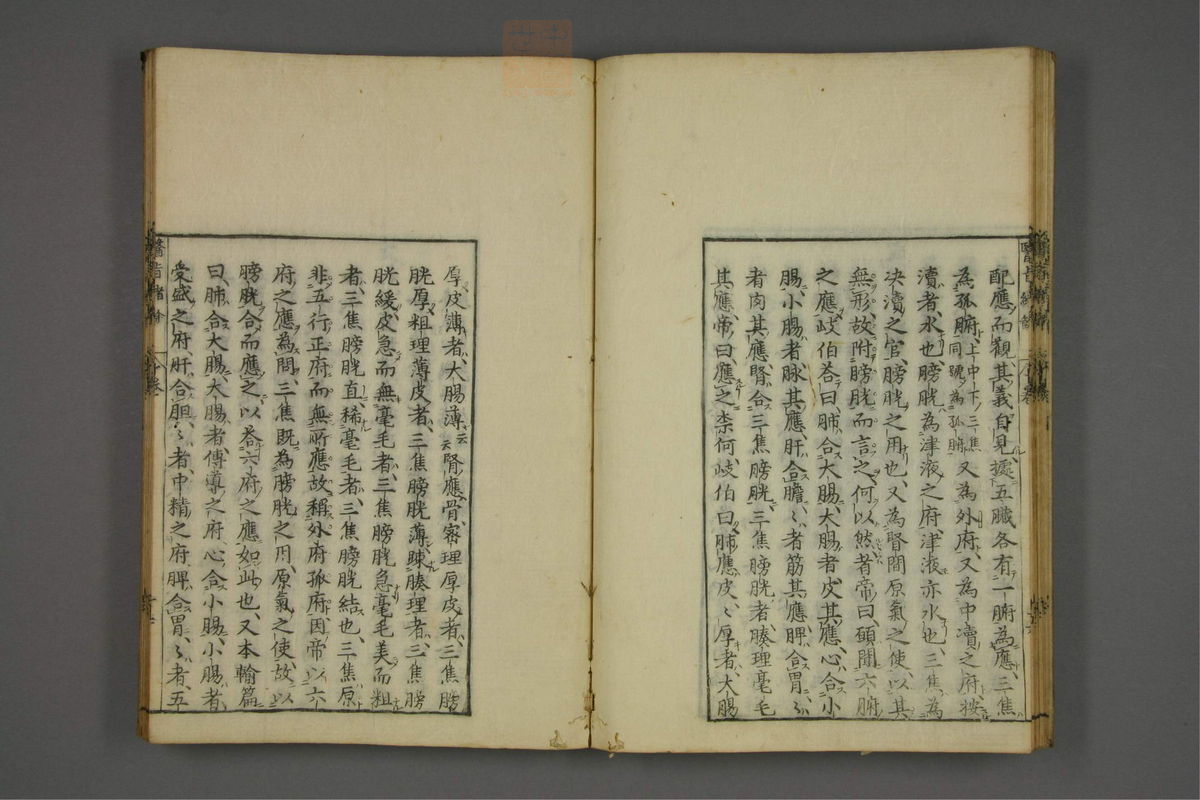 配應而觀其義自見據五臓各有一腑為應三焦
為孤腑上中下三焦同號為孤腑又為外府又為中瀆之府按
瀆者水也膀胱為津液之府津液亦水也三焦為
决瀆之官膀胱之用也又為腎間原氣之使以其
無形故附膀胱而言之何以然者帝曰願聞六腑
之應岐伯荅曰肺合大腸大腸者皮其應心合小
腸小腸者脉其應肝合膽〻者筋其應脾合胃〻
者肉其應腎合三焦膀胱三焦膀胱者腠理毫毛
其應帝曰應之柰何岐伯曰肺應皮〻厚者大腸
厚皮薄者大腸薄云云腎應骨密理厚皮者三焦膀
胱厚粗理薄皮者三焦膀胱薄踈腠理者三焦膀
胱緩皮急而無毫毛者三焦膀胱急毫毛美而粗
者三焦膀胱直稀毫毛者三焦膀胱結也三焦原
非五行正府而無所應故稱外府孤府因帝以六
府之應為問三焦既為膀胱之用原氣之使故以
膀胱合而應之以荅六府之應如此也又本輸篇
曰肺合大腸大腸者傳導之府心合小腸小腸者
受盛之府肝合胆〻者中精之府脾合胃〻者五